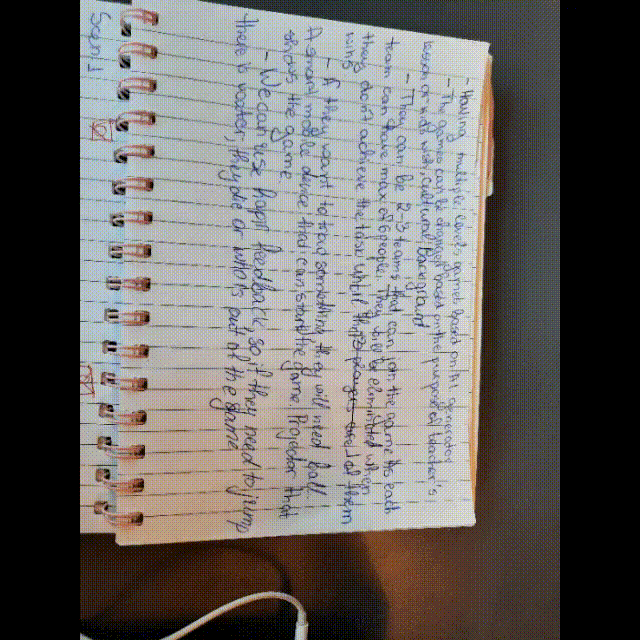 - Having multiple levels games based on AI generated
- The games can be changed based on the purpose of teacher's
lesson or individual, cultural background
- They can be 2-3 teams that can join the game its each
team can have max 2 people. They will be eliminated when
they don't achieve the task until last them
wins
- If they want to read something they will need ball
A small mobile device that can start the game. Projector that
shows the game
- We can use haptic feedback, so if they need to jump
there is vibrator, they die or what's out of the game
Scan 1